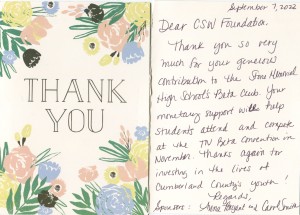 THANK
YOU
September 7, 2022
Dear CSW Foundation,
Thank you so very
much for your generous
contribution to the Stone Memorial
High School's Beta Club. Your
monetary support will help
students attend and compete
at the TN Beta Convention in
November. Thanks again for
investing in the lives of
Cumberland County's youth!
Regards,
Sponsors: and Carol Smith